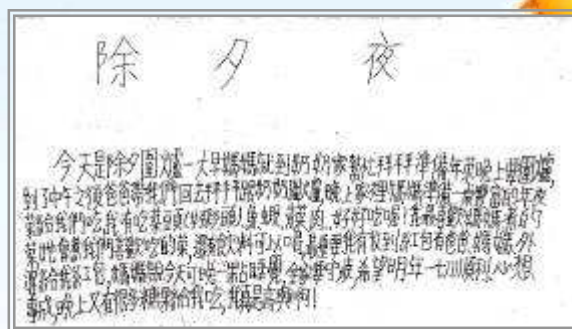 除夕夜
今天是除夕圍爐一大早媽媽就到奶奶家幫忙拜拜準備年菜晚上要圍爐,
到了中午之後爸爸帶我們回去拜拜跟奶奶圍爐,晚上家裡媽媽準備一桌豐富的年夜
菜給我們吃,我有吃 肉 好好吃喔!我最喜歡媽媽煮的
菜 會煮我們喜歡吃的菜,還有飲料可以喝,最重要我有收到紅包有爸爸、媽媽、外
婆給我紅包,媽媽說今天可晚一點睡覺, 要守歲,希望明年一切順利心想
事成,晚上又有很多糖果給我吃,我真是高興啊!